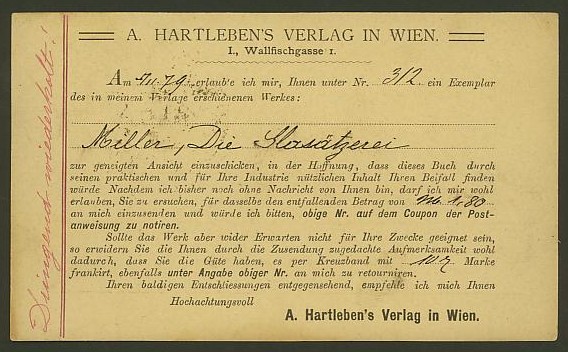 A. HARTLEBEN'S VERLAG IN WIEN.
I., Wallfischgasse 1.
Am 7/11. 79. erlaub'e ich mir, Ihnen unter Nr. 312 ein Exemplar
des in meinem Verlage erschienenen Werkes:
Miller, Die Glasätzerei
zur geneigten Ansicht einzuschicken, in der Hoffnung, dass dieses Buch durch
seinen praktischen und für Ihre Industrie nützlichen Inhalt Ihren Beifall finden
würde Nachdem ich bisher noch ohne Nachricht von Ihnen bin, darf ich mir wohl
erlauben, Sie zu ersuchen, für dasselbe den entfallenden Betrag von Mk. 1.80
an mich einzusenden und würde ich bitten, obige Nr. auf dem Coupon der Post-
anweisung zu notiren.
Sollte das Werk aber wider Erwarten nicht für Ihre Zwecke geeignet sein,
so erwidern Sie die Ihnen durch die Zusendung zugedachte Aufmerksamkeit wohl
dadurch, dass Sie die Güte haben, es per Kreuzband mit 10 Marke
frankirt, ebenfalls unter Angabe obiger Nr. an mich zu retourniren.
Ihren baldigen Entschliessungen entgegensehend, empfehle ich mich Ihnen
Hochachtungsvoll
A. Hartleben's Verlag in Wien.
Dringend wiederholt!